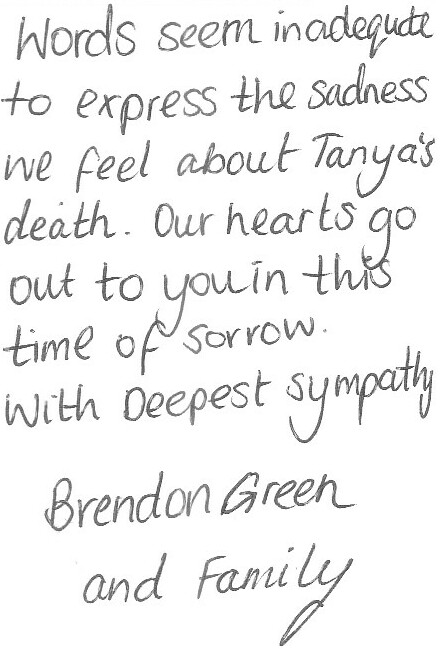 Words seem inadequate
to express the sadness
we feel about Tanya's
death. Our hearts go
out to you in this
time of sorrow.
With Deepest Sympathy
Brendon Green
and Family